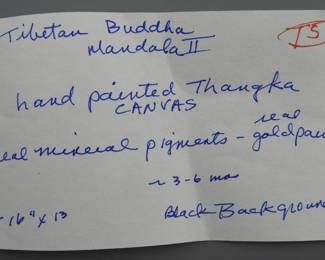 Tibetan Buddha
Mandala II
IS
hand painted Thangka
CANVAS
real
eal mineral pigments - goldpain
~ 3-6 mos
16" x 13
Black Background